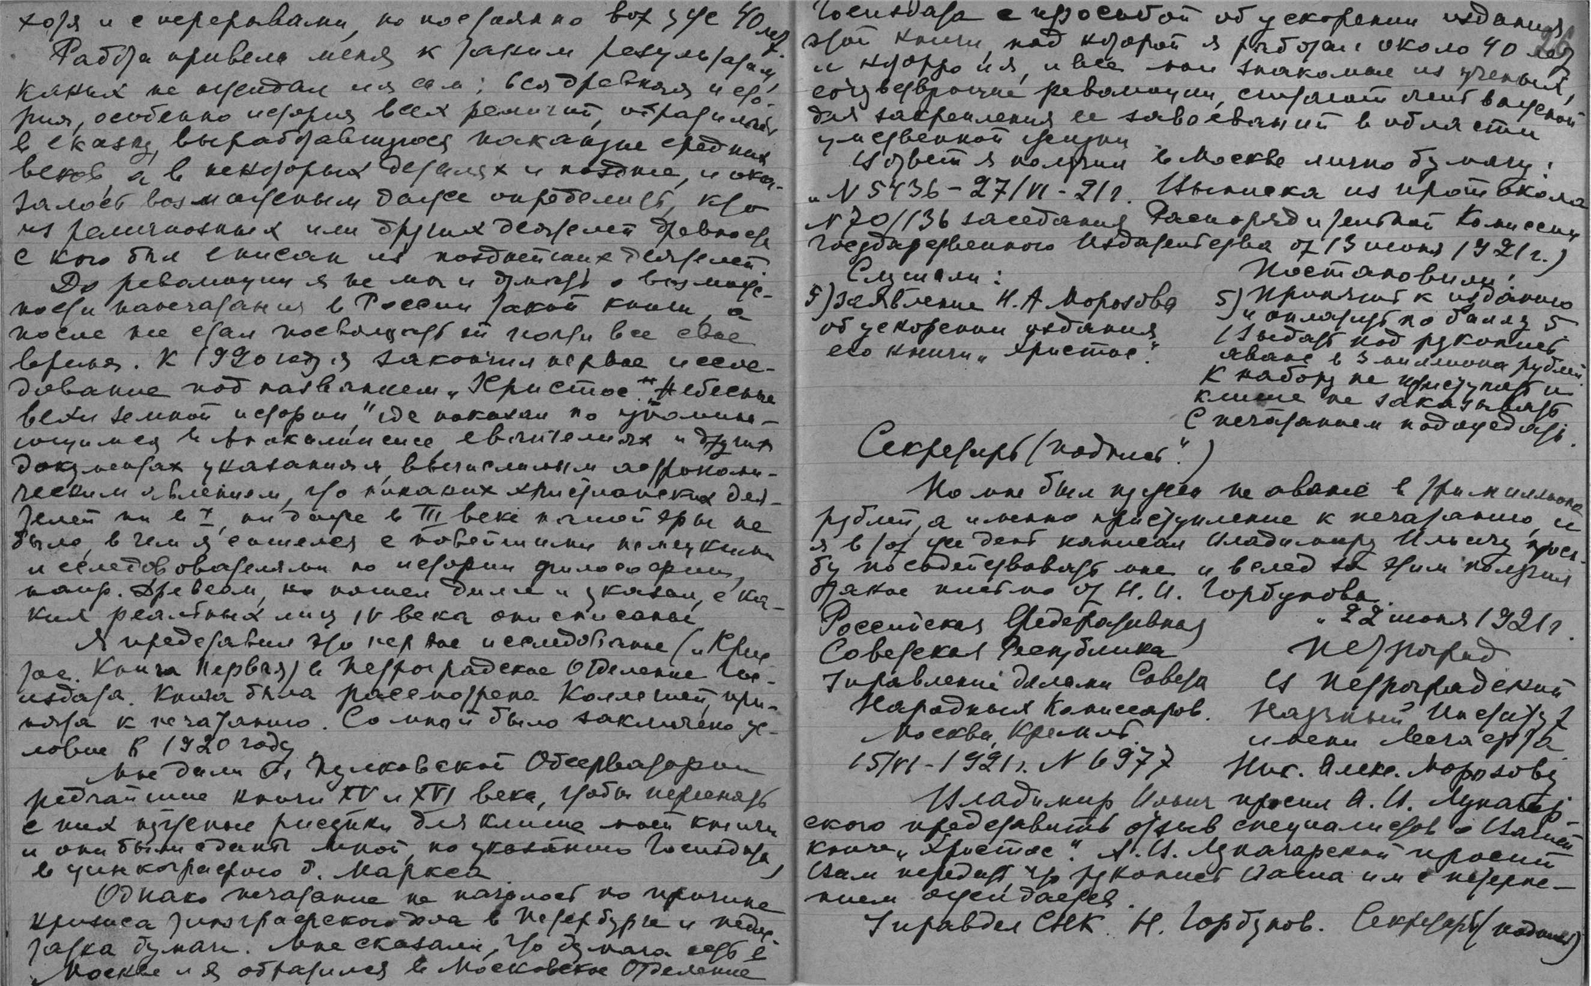 хотя и с перерывами, но постоянно вот уже 40 лет.
Работа привела меня к таким результатам,
каких не ожидал и я сам: вся древняя исто-
рия, особенно история всех религий, обратилась
в сказку, выработавшуюся накануне средних
веков, а в некоторых деталях и позднее, и ока-
залось возможным даже определить, кто
из религиозных или других деятелей древности
с кого был списан из позднейших деятелей.
До революции я не мог и думать о возмож-
ности напечатания в России такой книги, а
после нее стал посвящать ей почти все свое
время. К 1920 году я закончил первое иссле-
дование под названием „Христос". Небесные
вехи земной истории", где показал по упомина-
ющимся в Апокалипсисе, евангелиях и других
документах указаниям вычислимым астрономи-
ческим явлениям, что никаких христианских дея-
телей ни в I, ни даже в III веке нашей эры не
было, в чем я сошелся с новейшими немецкими
исследователями по истории философии,
напр. Древсом, но пошел далее и указал, с ка-
ких реальных лиц IV века они списаны.
Я представил это первое исследование („Хрис-
тос". Книга Первая) в Петроградское Отделение Гос-
издата. Книга была рассмотрена Коллегией, при-
нята к печатанию. Со мной было заключено ус-
ловие в 1920 году.
Мне дали от Пулковской Обсерватории
редчайшие книги XV и XVI века, чтобы переснять
с них нужные рисунки для клише моей книги
и они были сданы мной, по указанию Госиздата,
в цинкографию б. Маркса.
Однако печатание не началось по причине
кризиса типографского дела в Петербурге и недос-
татка бумаги. Мне сказали, что бумага есть в
Москве и я обратился в Московское Отделение
Госиздата с просьбой об ускорении издания
этой книги, над которой я работал около 40 лет
и которую я, и все мои знакомые из ученых,
сочувствующие революции, считают очень важной
для закрепления ее завоеваний в области
умственной жизни.
Ответ я получил в Москве лично бумагу:
„N 5436 – 27/VI – 21 г. Выписка из протокола
N 70/136 заседания Распорядительной Комиссии
Государственного Издательства от 13 июня 1921 г.)
Слушали:
5) Заявление Н. А. Морозова
об ускорении издания
его книги „Христос".
Постановили:
5) Принять к изданию
и оплатить по
Выдать под рукопись
аванс в 3 миллиона рублей.
К набору не приступать и
клише не заказывать
С печатанием подождать.
Секретарь (подпись".)
Но мне был нужен не аванс в три миллиона
рублей, а именно приступление к печатанию, и
я в тот же день написал Владимиру Ильичу прось-
бу посодействовать мне и вслед за этим получил
такое письмо от Н. П. Горбунова.
Российская Федеративная
Советская Республика
Управление делами Совета
Народных Комиссаров.
Москва, Кремль.
15/VI – 1921 г. N 6977
„22 июня 1921 г.
Петроград
В Петроградский
Научный Институт
имени Лесгафта
Ник. Алекс. Морозову
Владимир Ильич просил А. В. Луначар-
ского представить отзыв специалистов о Вашей
книге „Христос". А. В. Луначарский просит
Вам передать, что рукопись Ваша им с нетерпе-
нием ожидается.
Управдел СНК. Н. Горбунов. Секретарь (подпись)